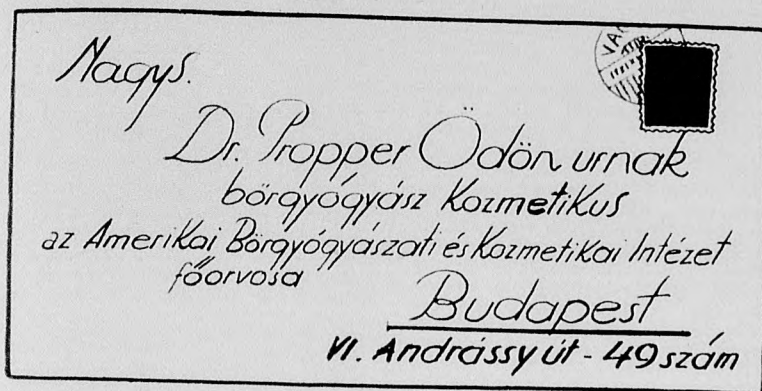 Nagys.
Dr. Propper Ödön urnak
bőrgyógyász Kozmetikus
az Amerikai Bőrgyógyászati és Kozmetikai Intézet
főorvosa
Budapest
VI. Andrássy út - 49 szám